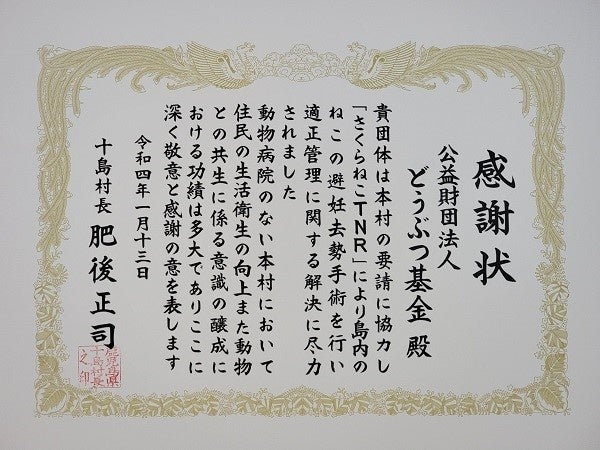 感謝状
公益財団法人
どうぶつ基金 殿
貴団体は本村の要請に協力し
「さくらねこTNR」により島内の
ねこの避妊去勢手術を行い
適正管理に関する解決に尽力
されました
動物病院のない本村において
住民の生活衛生の向上また動物
との共生に係る意識の醸成に
おける功績は多大でありここに
深く敬意と感謝の意を表します
令和四年一月十三日
十島村長 肥後正司
鹿児島県
十島村長
之印